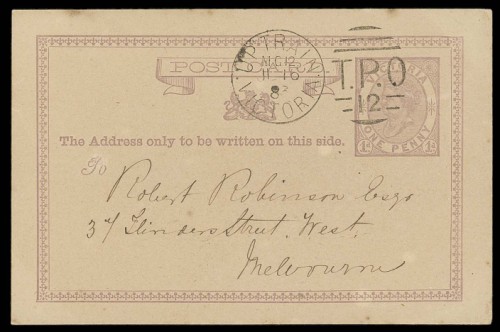 POST CARD
UP TRAIN
MG12
11-16
82
VICTORIA
T.P.O
12
VICTORIA
ONE PENNY
1d 1d
The Address only to be written on this side.
To
Robert Robinson Esqr
37 Flinders Street. West.
Melbourne